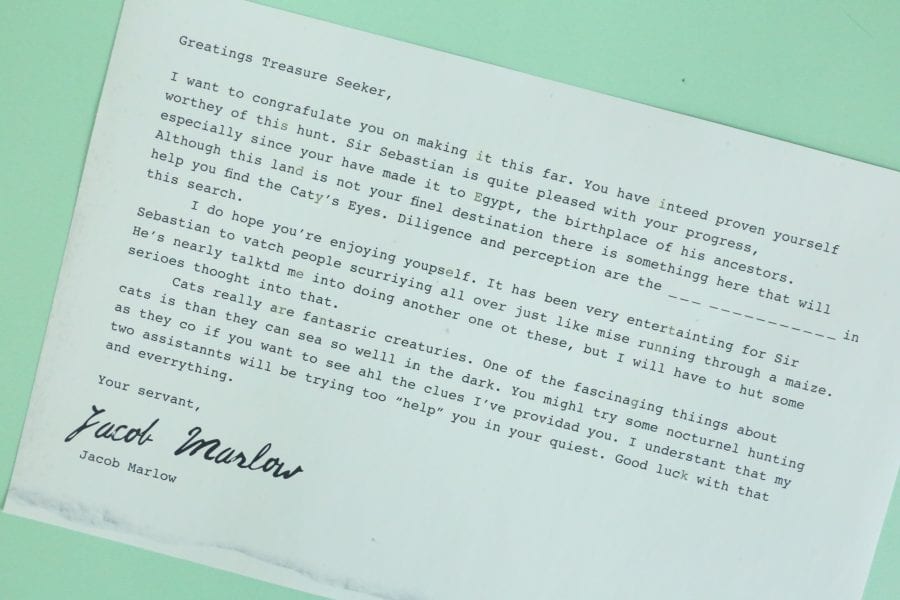 Greatings Treasure Seeker,
I want to congrafulate you on making it this far. You have inteed proven yourself
worthey of this hunt. Sir Sebastian is quite pleased with your progress,
especially since your have made it to Egypt, the birthplace of his ancestors.
Although this land is not your finel destination there is somethingg here that will
help you find the Caty's Eyes. Diligence and perception are the ___ ___________ in
this search.
I do hope you're enjoying youpself. It has been very entertainting for Sir
Sebastian to vatch people scurriying all over just like mise running through a maize.
He's nearly talktd me into doing another one ot these, but I will have to hut some
serioes thooght into that.
Cats really are fantasric creaturies. One of the fascinaging thiings about
cats is than they can sea so welll in the dark. You mighl try some nocturnel hunting
as they co if you want to see ahl the clues I've providad you. I understand that my
two assistannts will be trying too "help" you in your quiest. Good luck with that
and everrything.
Your servant,
Jacob Marlow
Jacob Marlow